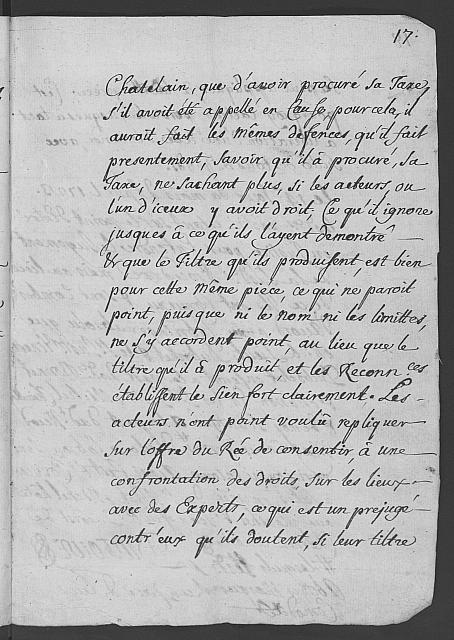 17.
Chatelain, que d'avoir procuré sa Taxe,
s'il avoit été appellé en Cause, pour cela, il
auroit fait les mêmes défences, qu'il fait
presentement, savoir qu'il à procuré, sa
Taxe, ne sachant plus, si les acteurs, ou
l'un d'iceux y avoit droit. Ce qu'il ignore
jusques à ce qu'ils l'ayent demontré —
& que le Tiltre qu'ils produisent, est bien
pour cette même piéce, ce qui ne paroit
point, puis que ni le nom ni les limittes,
ne s'y accordent point, au lieu que le
tiltre qu'il à produit et les Reconn.ces
établissent le sien fort clairement. Les
acteurs n'ont point voulû repliquer
sur l'offre du Rée, de consentir, à une
confrontation des droits, sur les lieux
avec des Experts, ce qui est un prejugé
contr'eux qu'ils doutent, si leur tiltre